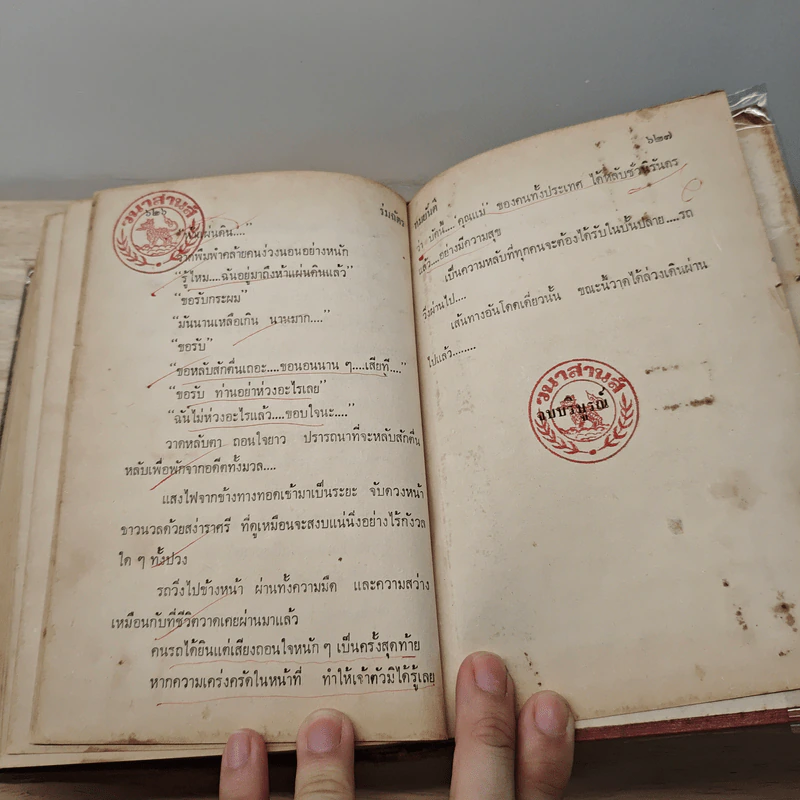 ๖๒๖
ร่มฉัตร
วนาสานส์
ผืนดิน...."
วาดพึมพำคล้ายคนง่วงนอนอย่างหนัก
"รู้ไหม....ฉันอยู่มาถึงห้าแผ่นดินแล้ว"
"ขอรับกระผม"
"มันนานเหลือเกิน นานมาก...."
"ขอรับ"
"ขอหลับสักตื่นเถอะ....ขอนอนนาน ๆ....เสียที...."
"ขอรับ ท่านอย่าห่วงอะไรเลย"
"ฉันไม่ห่วงอะไรแล้ว....ขอบใจนะ...."
วาดหลับตา ถอนใจยาว ปรารถนาที่จะหลับสักตื่น
หลับเพื่อพักจากอดีตทั้งมวล....
แสงไฟจากข้างทางทอดเข้ามาเป็นระยะ จับดวงหน้า
ขาวนวลด้วยสง่าราศรี ที่ดูเหมือนจะสงบแน่นิ่งอย่างไร้กังวล
ใด ๆ ทั้งปวง
รถวิ่งไปข้างหน้า ผ่านทั้งความมืด และความสว่าง
เหมือนกับที่ชีวิตวาดเคยผ่านมาแล้ว
คนรถได้ยินแต่เสียงถอนใจหนัก ๆ เป็นครั้งสุดท้าย
หากความเคร่งครัดในหน้าที่ ทำให้เจ้าตัวมิได้รู้เลย
๖๒๗
ทมยันตี
ว่า บัดนี้...."คุณแม่" ของคนทั้งประเทศ ได้หลับชั่วนิรันดร
แล้ว....อย่างมีความสุข
เป็นความหลับที่ทุกคนจะต้องได้รับในบั้นปลาย....รถ
วิ่งผ่านไป....
เส้นทางอันโดดเดี่ยวนั้น ขณะนี้วาดได้ล่วงเดินผ่าน
ไปแล้ว........
วนาสานส์
จบบริบูรณ์